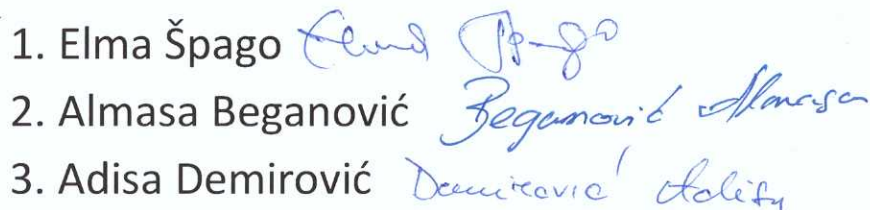 1. Elma Špago Elma Špago
2. Almasa Beganović Beganović Almasa
3. Adisa Demirović Demirović Adisa